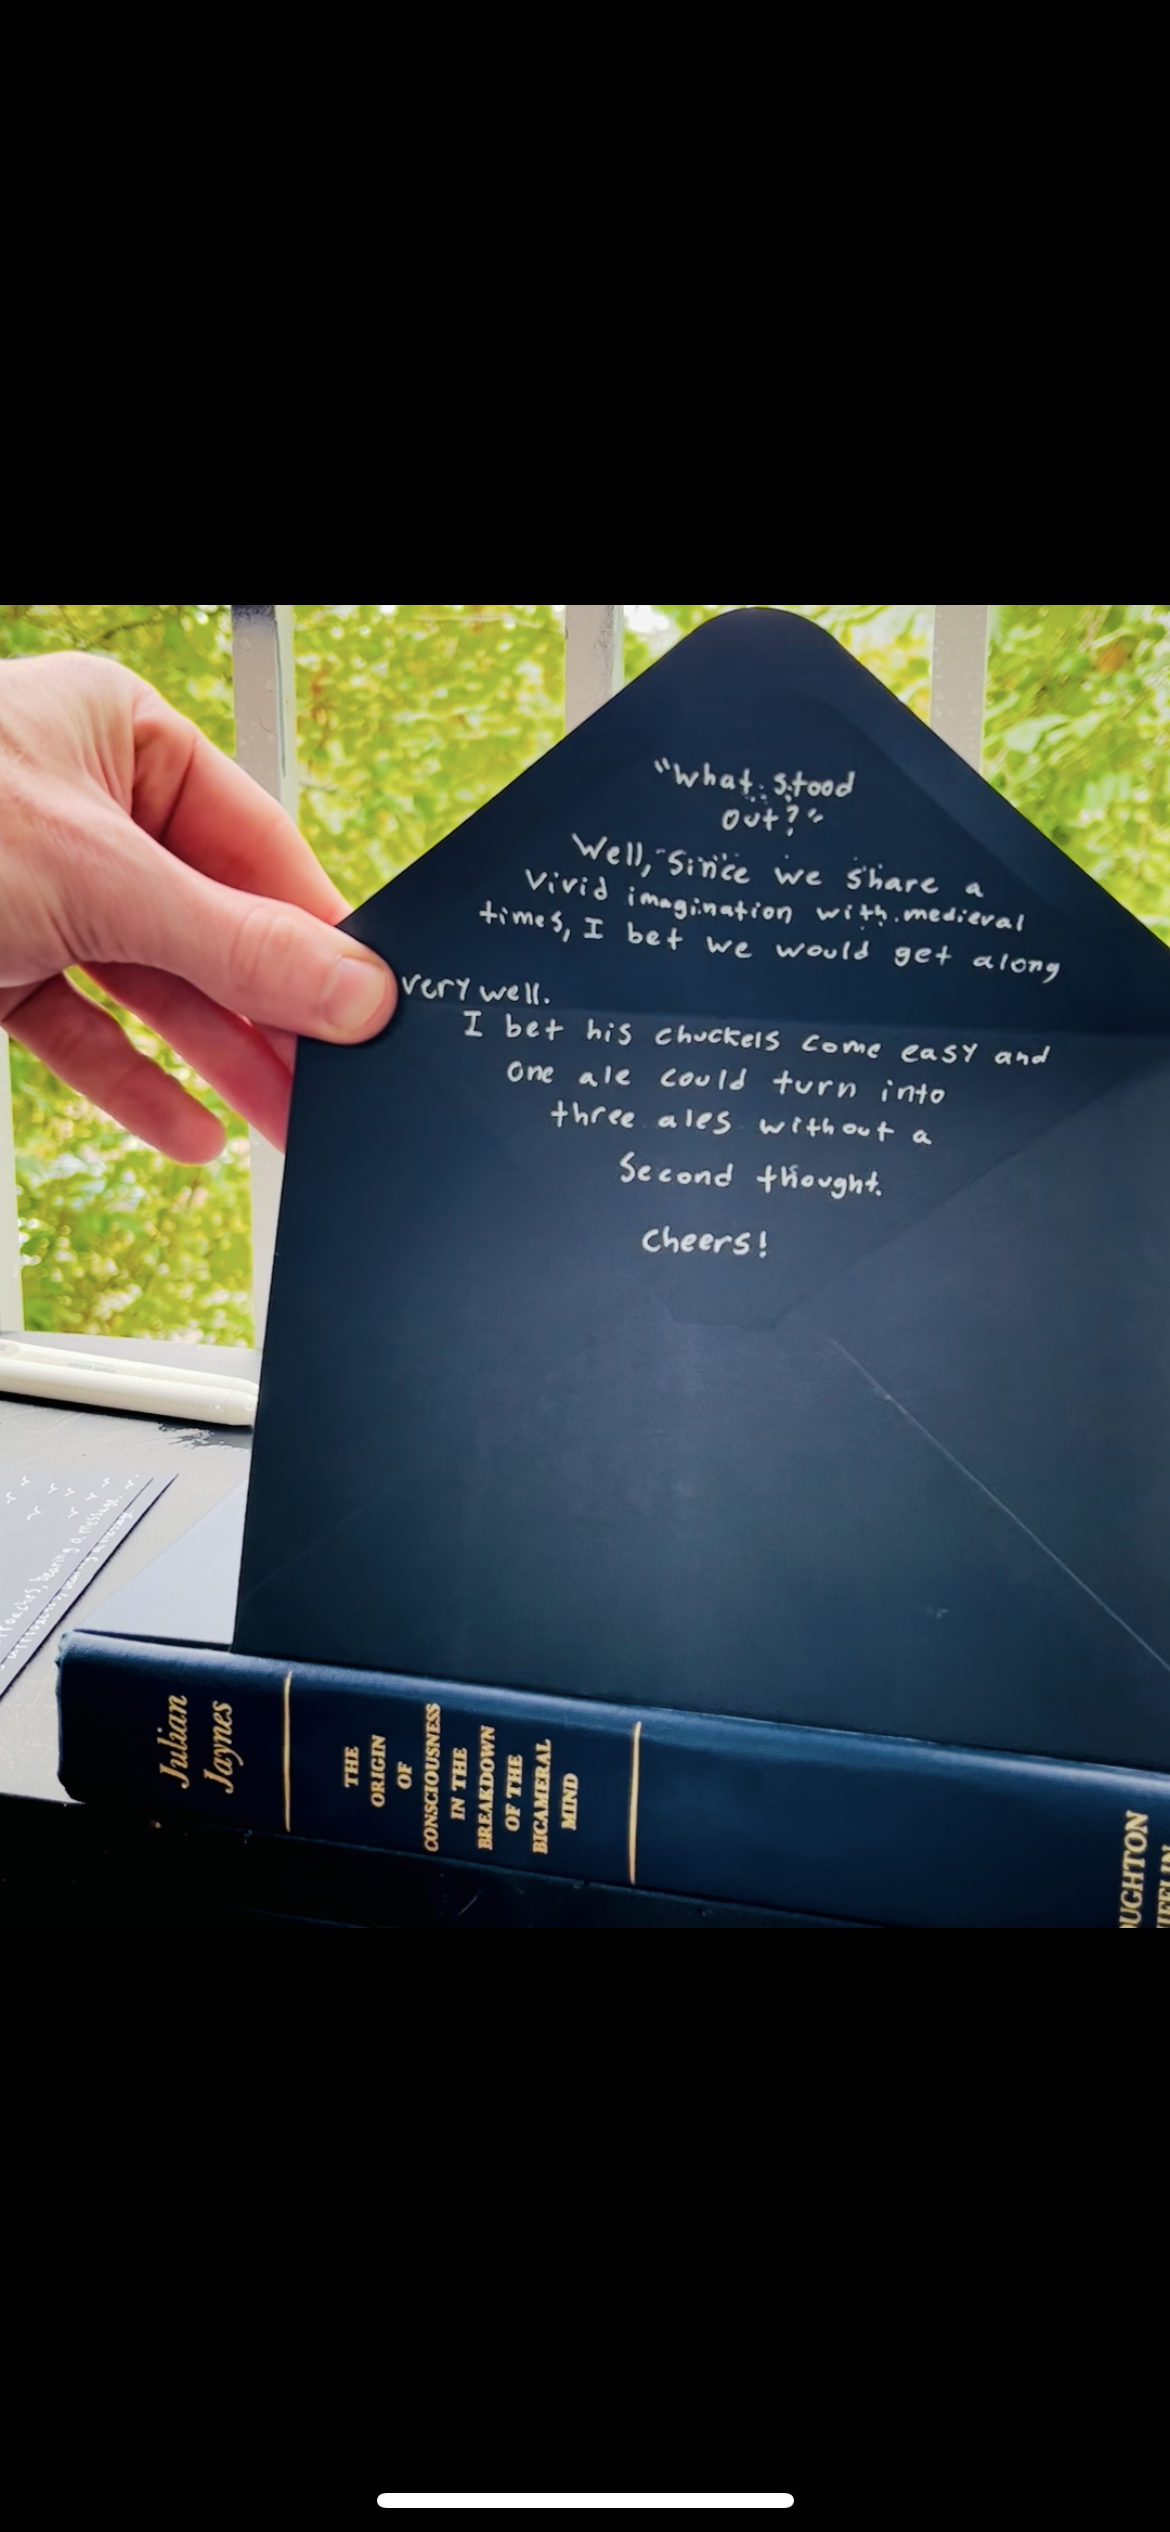 "What stood
out?"
Well, Since we share a
vivid imagination with medieval
times, I bet we would get along
very well.
I bet his chuckels come easy and
one ale could turn into
three ales without a
Second thought.
Cheers!
roaches, bearing a message.
Julian
Jaynes
THE
ORIGIN
OF
CONSCIOUSNESS
IN THE
BREAKDOWN
OF THE
BICAMERAL
MIND
OUGHTON